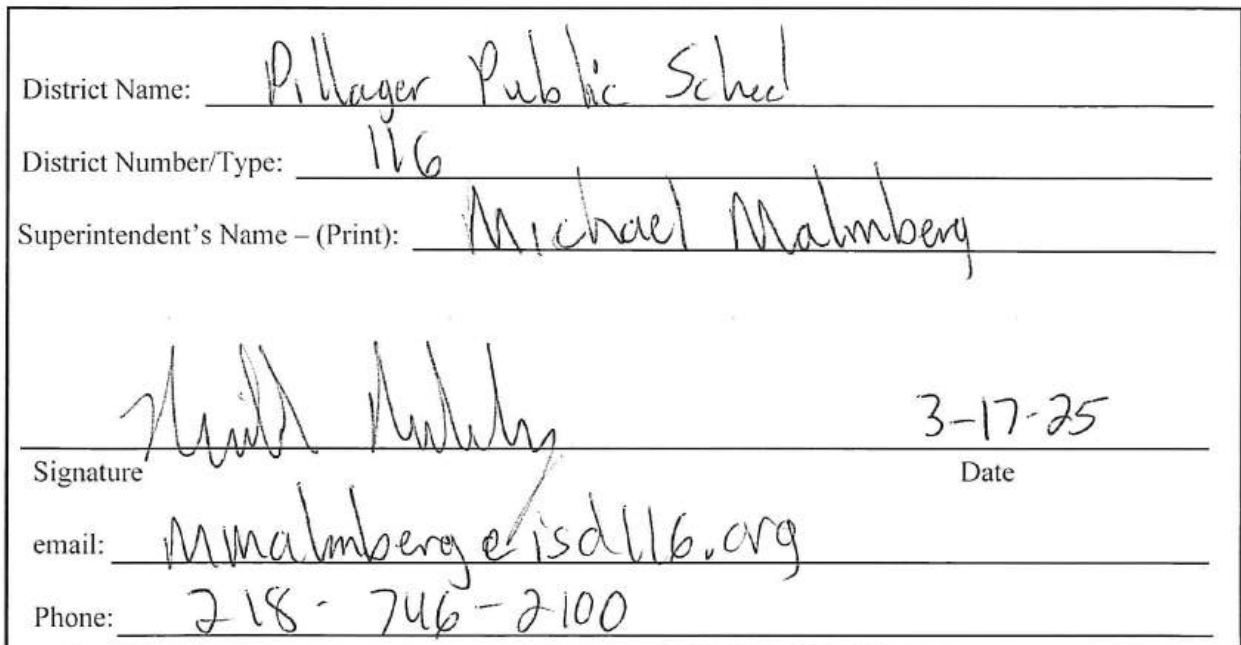 District Name: Pillager Public School
District Number/Type: 116
Superintendent's Name – (Print): Michael Malmberg
3-17-25
Signature Date
email: mmalmberg@isd116.org
Phone: 218-746-2100